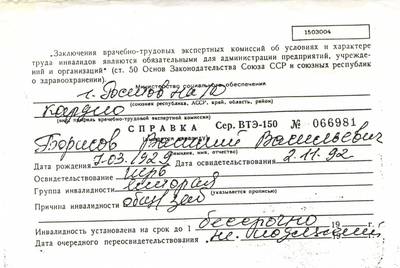 1503004
„Заключения врачебно-трудовых экспертных комиссий об условиях и характере
труда инвалидов являются обязательными для администрации предприятий, учрежде-
ний и организаций" (ст. 50 Основ Законодательства Союза ССР и союзных республик
о здравоохранении).
Министерство социального обеспечения
г. Ростов на Д
(союзная республика, АССР, край, область, район)
кардио
профиль врачебно-трудовой экспертной комиссии)
СПРАВКА Сер. ВТЭ-150 № 066981
Борисов Василий Васильевич
(фамилия, имя, отчество)
Дата рождения 7.03.1929 Дата освидетельствования 2.11.92
Освидетельствование перв
Группа инвалидности вторая
(указывается прописью)
Причина инвалидности общ заб
Инвалидность установлена на срок до 1 бессрочно 19 г.
Дата очередного переосвидетельствования не подлежит